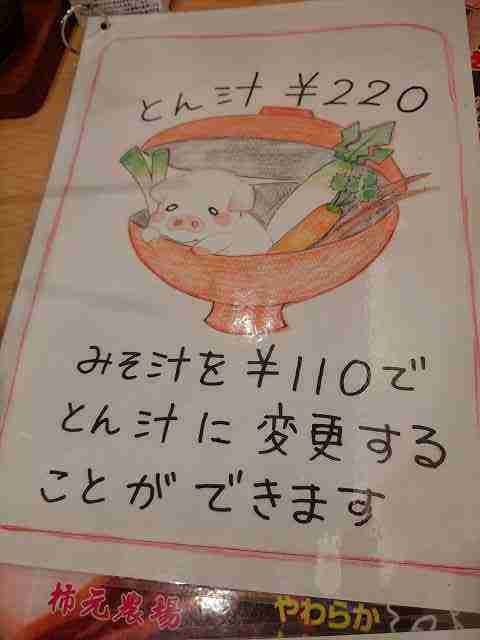 とん汁 ¥220
みそ汁を ¥110で
とん汁に 変更する
ことができます
柿元農場
やわらか